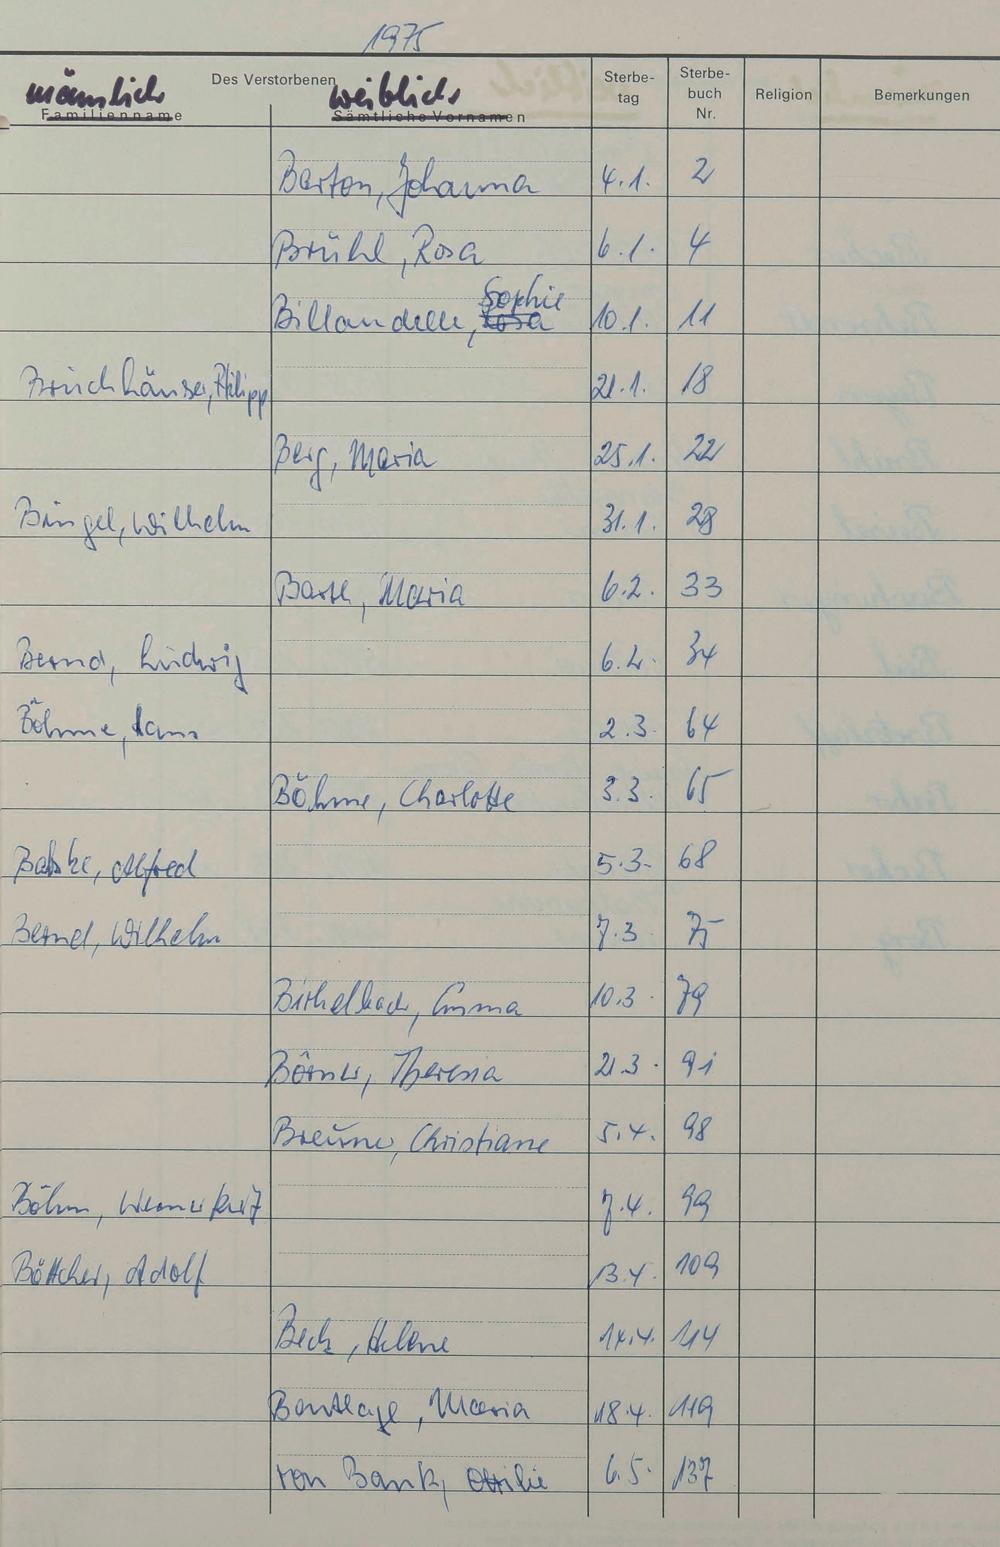 1975
Des Verstorbenen
männlich weiblich
Familienname Sämtliche Vornamen Sterbe-tag Sterbe-buch Nr. Religion Bemerkungen
Barton, Johanna 4.1. 2
Brühl, Rosa 6.1. 4
Sophie
Billandelle, Rosa 10.1. 11
Bruchhäuser, Philipp 21.1. 18
Berg, Maria 25.1. 22
Bingel, Wilhelm 31.1. 28
Barth, Maria 6.2. 33
Bernd, Ludwig 6.2. 34
Böhme, Hans 2.3. 64
Böhme, Charlotte 3.3. 65
Alfred 5.3. 68
Bernd, Wilhelm 7.3 75
Birkelbach, Emma 10.3. 79
Börner, Theresia 21.3. 91
Breuner, Christiane 5.4. 98
Böhm, Werner Fritz 7.4. 99
Böttcher, Adolf 13.4. 109
Beck, Helene 14.4. 114
Maria 18.4. 119
von Bank, Ottilie 6.5. 137